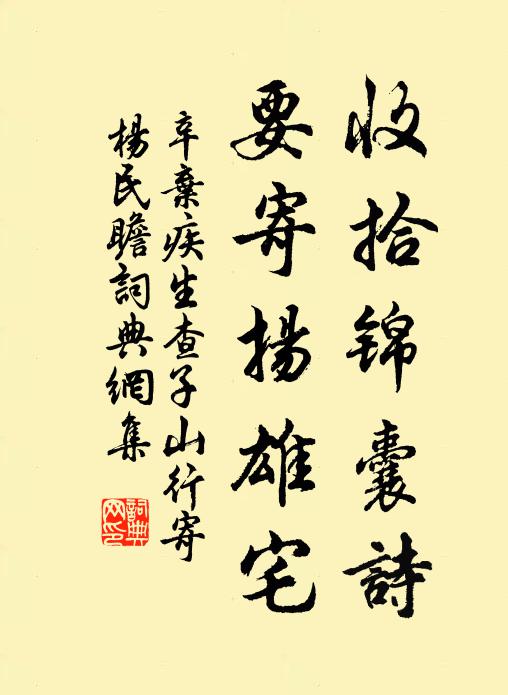 收拾锦囊詩
要寄揚雄宅
辛棄疾生查子山行寄
楊民瞻詞典網集
詞典网印